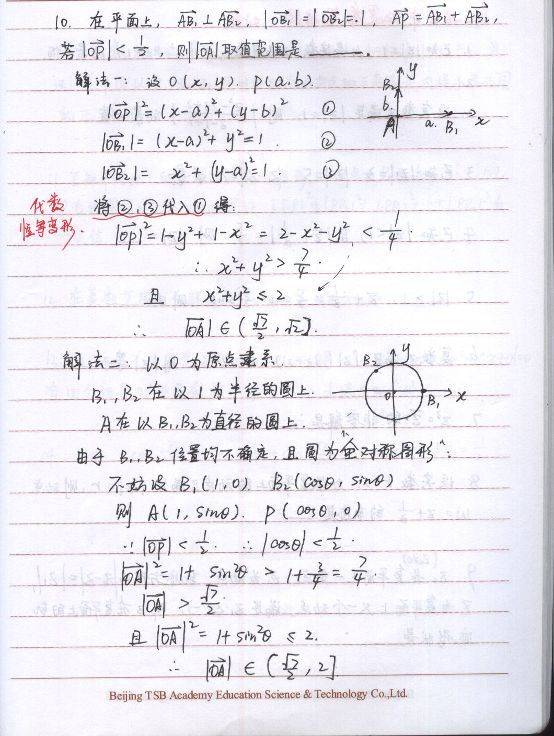 10. 在平面上, AB₁⃗ ⊥ AB₂⃗, |OB₁⃗|=|OB₂⃗|=1, AP⃗ = AB₁⃗ + AB₂⃗,
若|OP⃗| < 1/2, 则|OA⃗|取值范围是 ____.
解法一: 设 O(x, y). P(a, b).
|OP⃗|² = (x-a)² + (y-b)² ①
|OB₁⃗| = (x-a)² + y² = 1 ②
|OB₂⃗| = x² + (y-a)² = 1 ③
y
B₂
b
A
a
B₁
x
代数
恒等变形.
将②,③代入①得:
|OP⃗|² = 1-y²+1-x² = 2-x²-y² < 1/4
∴ x²+y² > 7/4
且 x²+y² ≤ 2
∴ |OA⃗| ∈ (√7/2, √2].
解法二: 以O为原点建系
B₁, B₂ 在以1为半径的圆上.
A在以B₁,B₂为直径的圆上.
y
B₂
O
B₁
x
由于 B₁, B₂ 位置均不确定, 且圆为"全对称图形":
不妨设 B₁(1, 0) B₂(cosθ, sinθ)
则 A(1, sinθ). P(cosθ, 0)
∵ |OP⃗| < 1/2. ∴ |cosθ| < 1/2.
|OA⃗|² = 1+ sin²θ > 1+3/4 = 7/4
|OA⃗| > √7/2.
且 |OA⃗|² = 1+sin²θ ≤ 2.
∴ |OA⃗| ∈ (√7/2, 2]
Beijing TSB Academy Education Science & Technology Co.,Ltd.